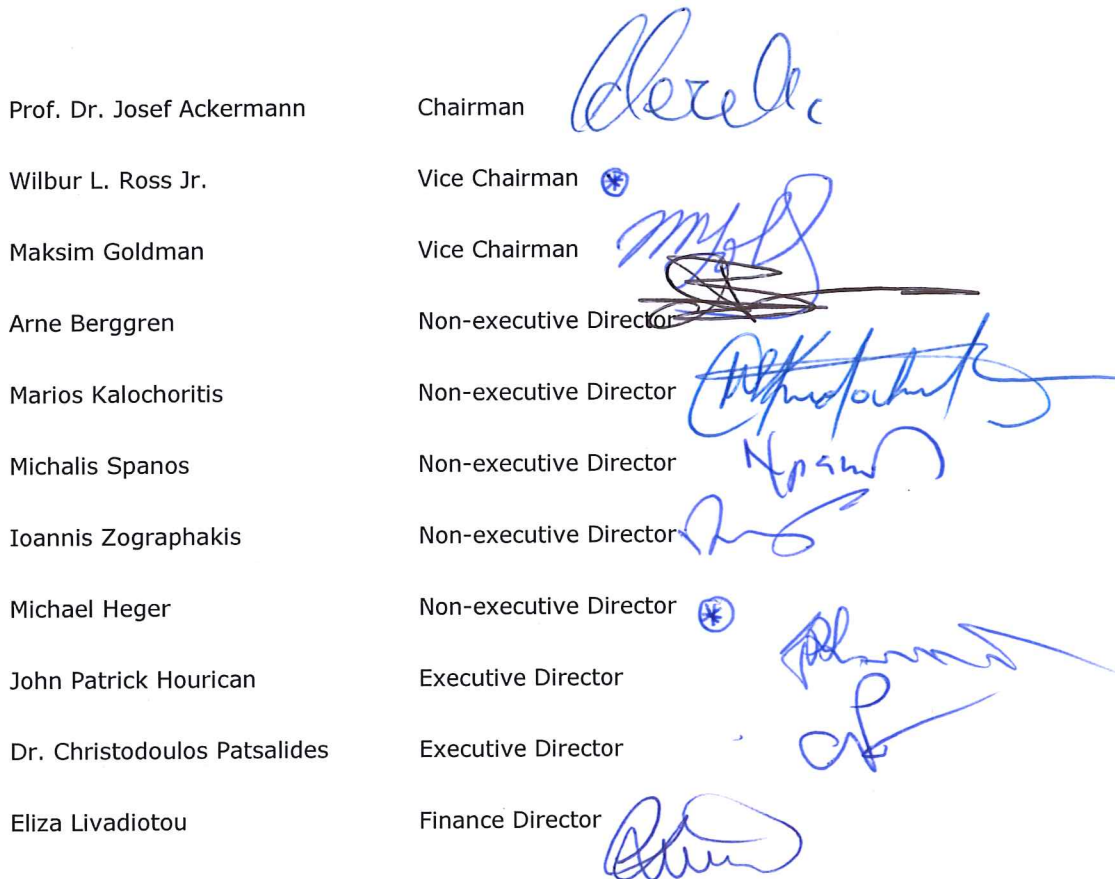 Prof. Dr. Josef Ackermann Chairman
Wilbur L. Ross Jr. Vice Chairman *
Maksim Goldman Vice Chairman
Arne Berggren Non-executive Director
Marios Kalochoritis Non-executive Director
Michalis Spanos Non-executive Director
Ioannis Zographakis Non-executive Director
Michael Heger Non-executive Director *
John Patrick Hourican Executive Director
Dr. Christodoulos Patsalides Executive Director
Eliza Livadiotou Finance Director